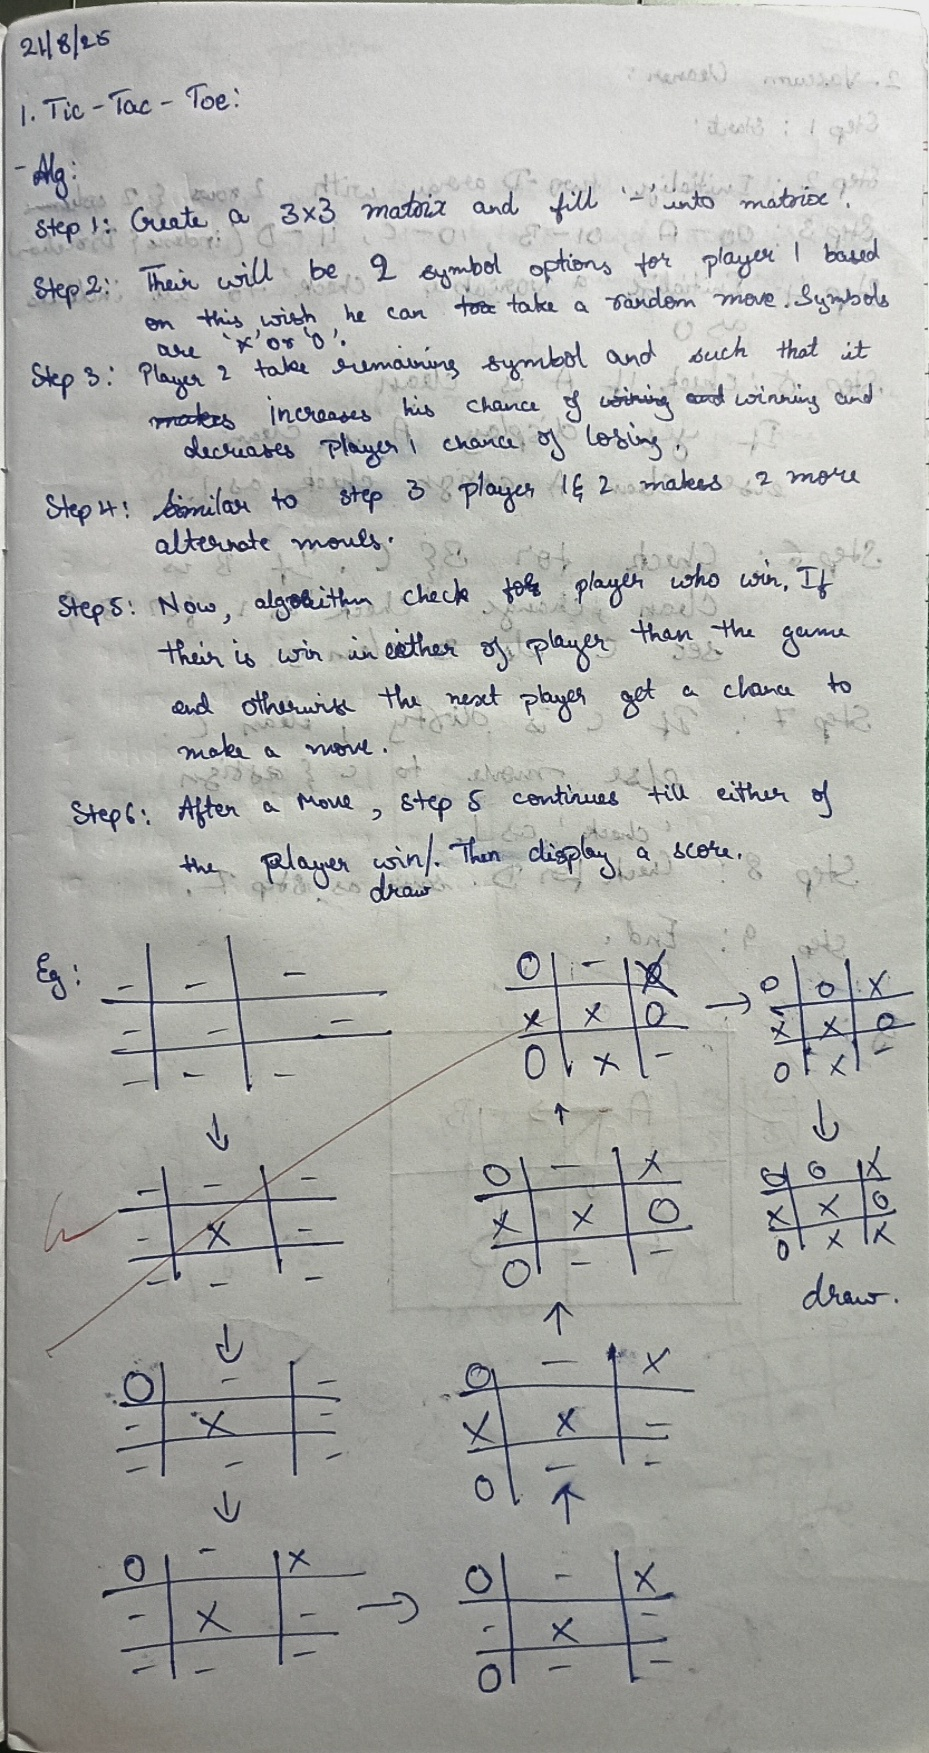 21/8/25
1. Tic - Tac - Toe:
- Alg:
Step 1: Create a 3x3 matrix and fill '-' into matrix.
Step 2: Their will be 2 symbol options for player 1 based
on this, wish he can take a random move. Symbols
are 'x' or 'o'.
Step 3: Player 2 take remaining symbol and such that it
makes increases his chance of winning and winning and
decreases player 1 chance of losing.
Step 4: Similar to step 3 player 1 & 2 makes 2 more
alternate moves.
Step 5: Now, algorithm check for player who win. If
their is win in either of player than the game
end otherwise the next player get a chance to
make a move.
Step 6: After a move, step 5 continues till either of
the player win/. Then display a score.
draw
Eg:
- - -
- - -
- - -
- - -
- X -
- - -
O - -
- X -
- - -
O - X
- X -
- - -
O - X
- X -
O - -
O - X
X X -
O - -
O - X
X X O
O - -
O - X
X X O
O X -
O O X
X X O
O X -
O O X
X X O
O X X
draw.